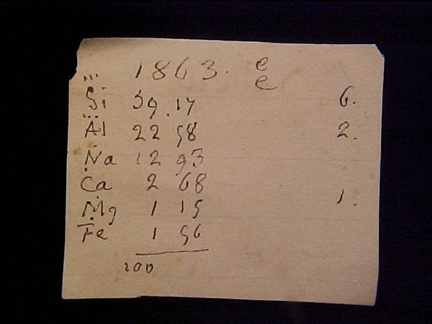 ... 1863. e
e
Si 59.17 6.
Al 22 58 2.
Na 12 93
Ca 2 68
Mg 1 15 1.
Fe 1 56
100